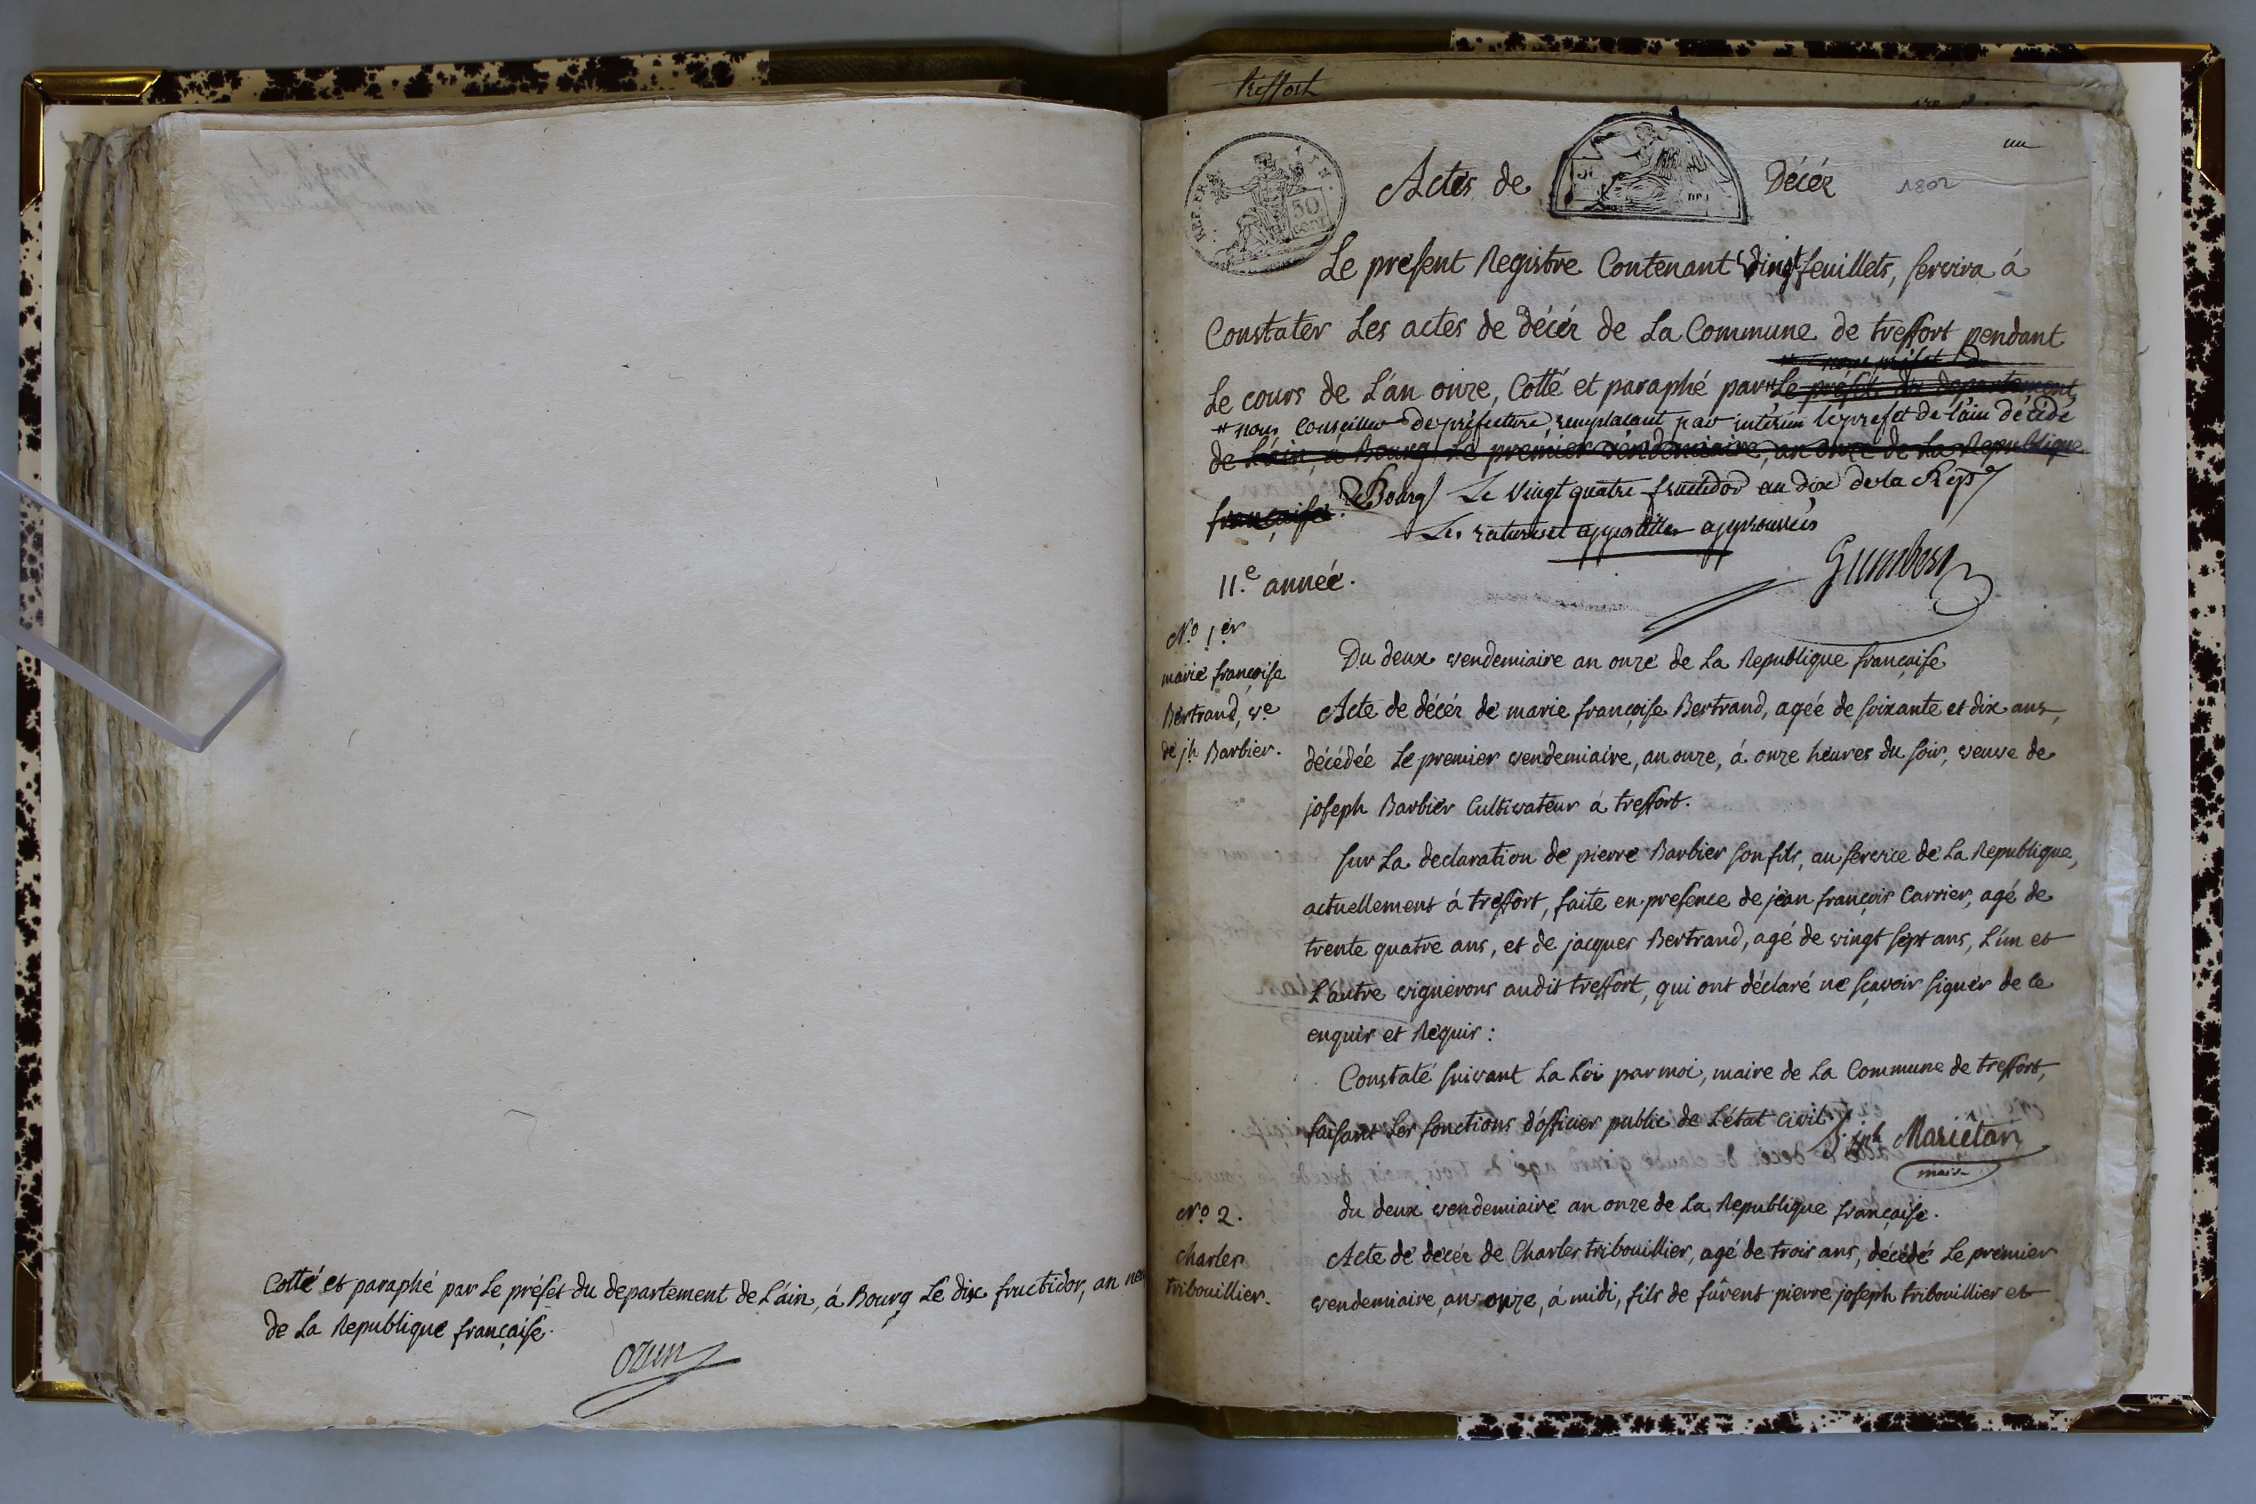 Cotté et paraphé par Le préfet du departement de L'ain, à Bourg Le dix fructidor, an
de La Republique françaiſe.
ozun
Treffort
un
REP. FRA.
50
CENT
Actes de Décéz
1802
Le preſent Registre Contenant vingt feuillets, ſervira á
Constater Les actes de décéz de La Commune de treffort pendant
nous préfet d
Le cours de L'an onze, Cotté et paraphé par Le préfet du departement
nous conseiller de préfecture, remplacant par intérim le préfet de l'ain décidé
de L'ain, á Bourg Le prémier vendemiaire, an onze de La Republique
françaiſe. Bourg Le vingt quatre fructidor an dix de la Rep
Les ratures et appostilles approuvées
11.e année.
Gumbert
N.o 1er
marie françoiſe
Bertrand, ve
de jh Barbier.
Du deux vendemiaire an onze de La Republique françaiſe
Acte de décéz de marie françoiſe Bertrand, agée de ſoixante et dix ans,
décédée Le premier vendemiaire, an onze, á onze heures du ſoir, veuve de
joſeph Barbier Cultivateur á treffort.
ſur La declaration de pierre Barbier ſon fils, au ſervice de La Republique,
actuellement á treffort, faite en preſence de jean françois Carrier, agé de
trente quatre ans, et de jacques Bertrand, agé de vingt ſept ans, L'un et
L'autre vignerons audit treffort, qui ont déclaré ne ſçavoir ſigner de ce
enquis et Réquis :
Constaté ſuivant La Loi par moi, maire de La Commune de treffort,
faiſant Les fonctions d'officier public de L'état civil
Jph Mariétan
maire
N.o 2.
Charles
tribouillier.
du deux vendemiaire an onze de La Republique françaiſe.
Acte de décéz de Charles tribouillier, agé de trois ans, décédé Le premier
vendemiaire, an onze, á midi, fils de fûrent pierre joſeph tribouillier et